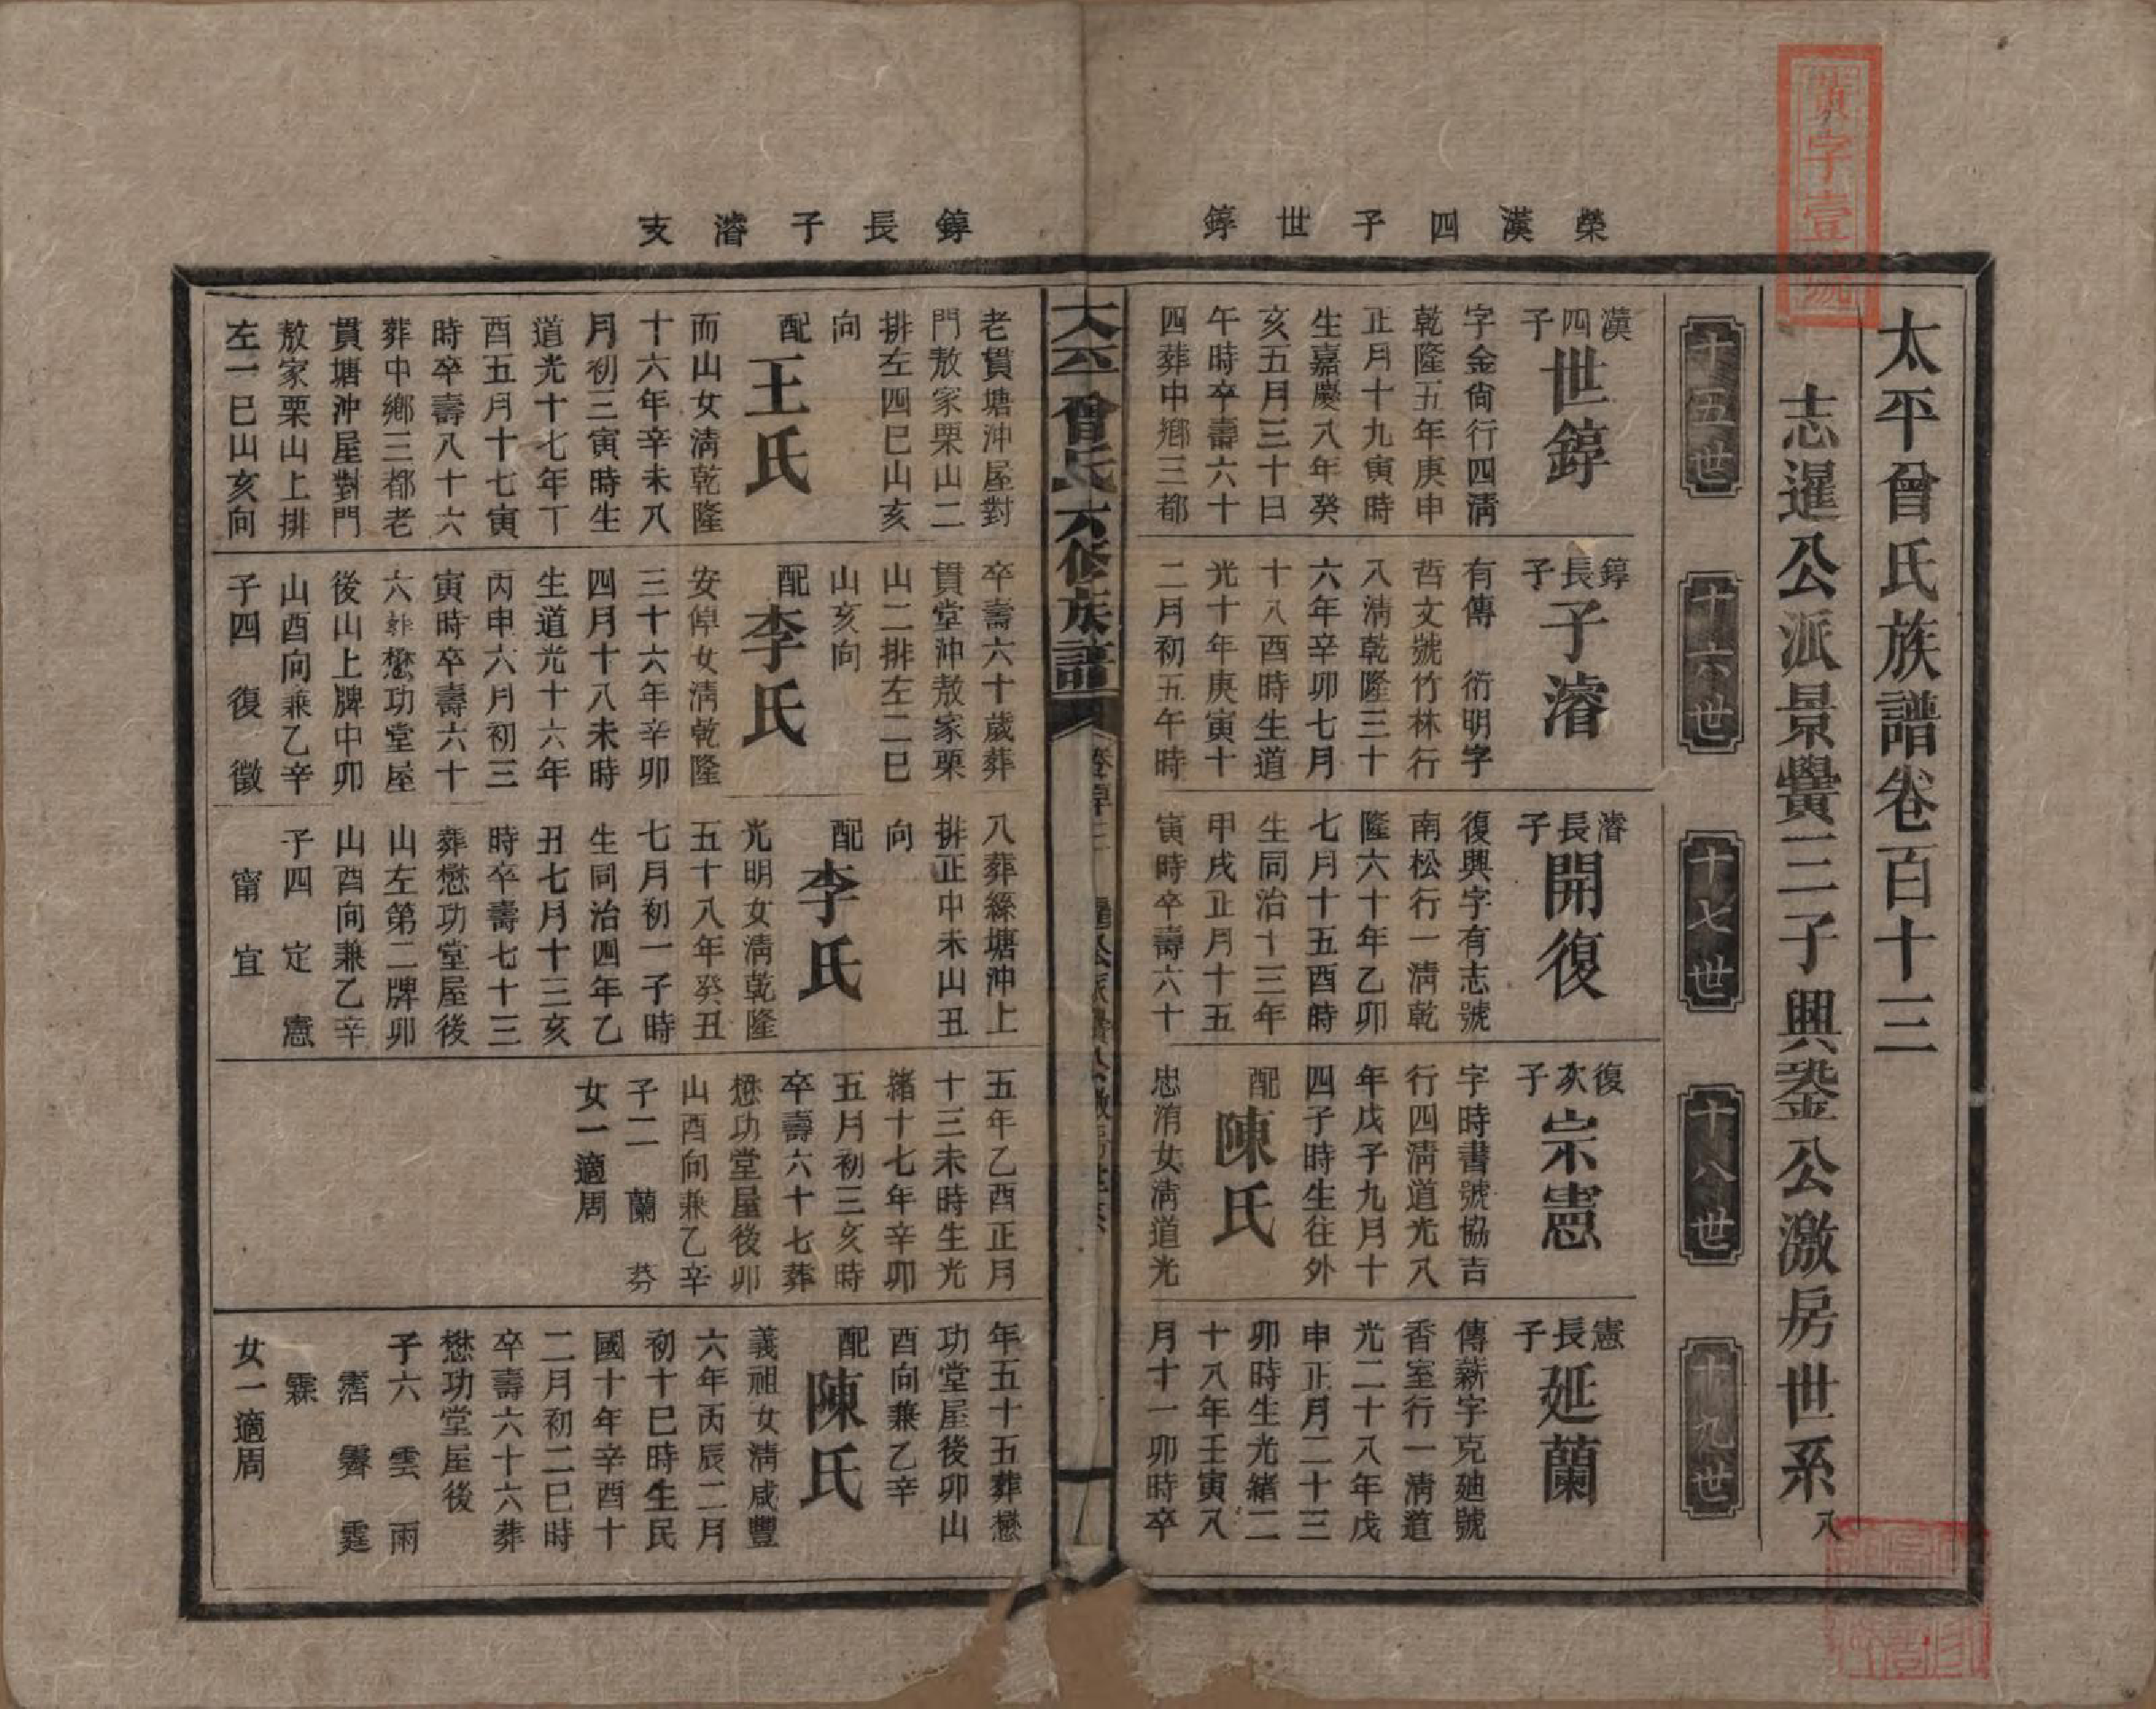 榮漢四子世錞
錞長子濬支
太平曾氏族譜卷百十三
志暹公派景黌三子興鋆公激房世系 八
十五世
十六世
十七世
十八世
十九世
漢四子世錞
字金尙行四淸
乾隆五年庚申
正月十九寅時
生嘉慶八年癸
亥五月三十日
午時卒壽六十
四葬中鄉三都
老貫塘沖屋對
門敖家栗山二
排左四巳山亥
向
配王氏
而山女淸乾隆
十六年辛未八
月初三寅時生
道光十七年丁
酉五月十七寅
時卒壽八十六
葬中鄉三都老
貫塘沖屋對門
敖家栗山上排
左一巳山亥向
錞長子子濬
有傳 衍明字
哲文號竹林行
八淸乾隆三十
六年辛卯七月
十八酉時生道
光十年庚寅十
二月初五午時
卒壽六十歲葬
貫堂沖敖家栗
山二排左二巳
山亥向
配李氏
安偉女淸乾隆
三十六年辛卯
四月十八未時
生道光十六年
丙申六月初三
寅時卒壽六十
六葬懋功堂屋
後山上牌中卯
山酉向兼乙辛
子四 復 徵
甯 宜
濬長子開復
復興字有志號
南松行一淸乾
隆六十年乙卯
七月十五酉時
生同治十三年
甲戌正月十五
寅時卒壽六十
八葬綠塘沖上
排正中未山丑
向
配李氏
光明女淸乾隆
五十八年癸丑
七月初一子時
生同治四年乙
丑七月十三亥
時卒壽七十三
葬懋功堂屋後
山左第二牌卯
山酉向兼乙辛
子四 定 憲
復次子宗憲
字時書號協吉
行四淸道光八
年戊子九月十
四子時生往外
配陳氏
忠淯女淸道光
五年乙酉正月
十三未時生光
緒十七年辛卯
五月初三亥時
卒壽六十七葬
懋功堂屋後卯
山酉向兼乙辛
子二 蘭 芬
女一適周
憲長子延蘭
傳薪字克廸號
香室行一淸道
光二十八年戊
申正月二十三
卯時生光緒二
十八年壬寅八
月十一卯時卒
年五十五葬懋
功堂屋後卯山
酉向兼乙辛
配陳氏
義祖女淸咸豐
六年丙辰二月
初十巳時生民
國十年辛酉十
二月初二巳時
卒壽六十六葬
懋功堂屋後
子六 雲 雨
霑 霽 霆
霖
女一適周
太平曾氏六修族譜